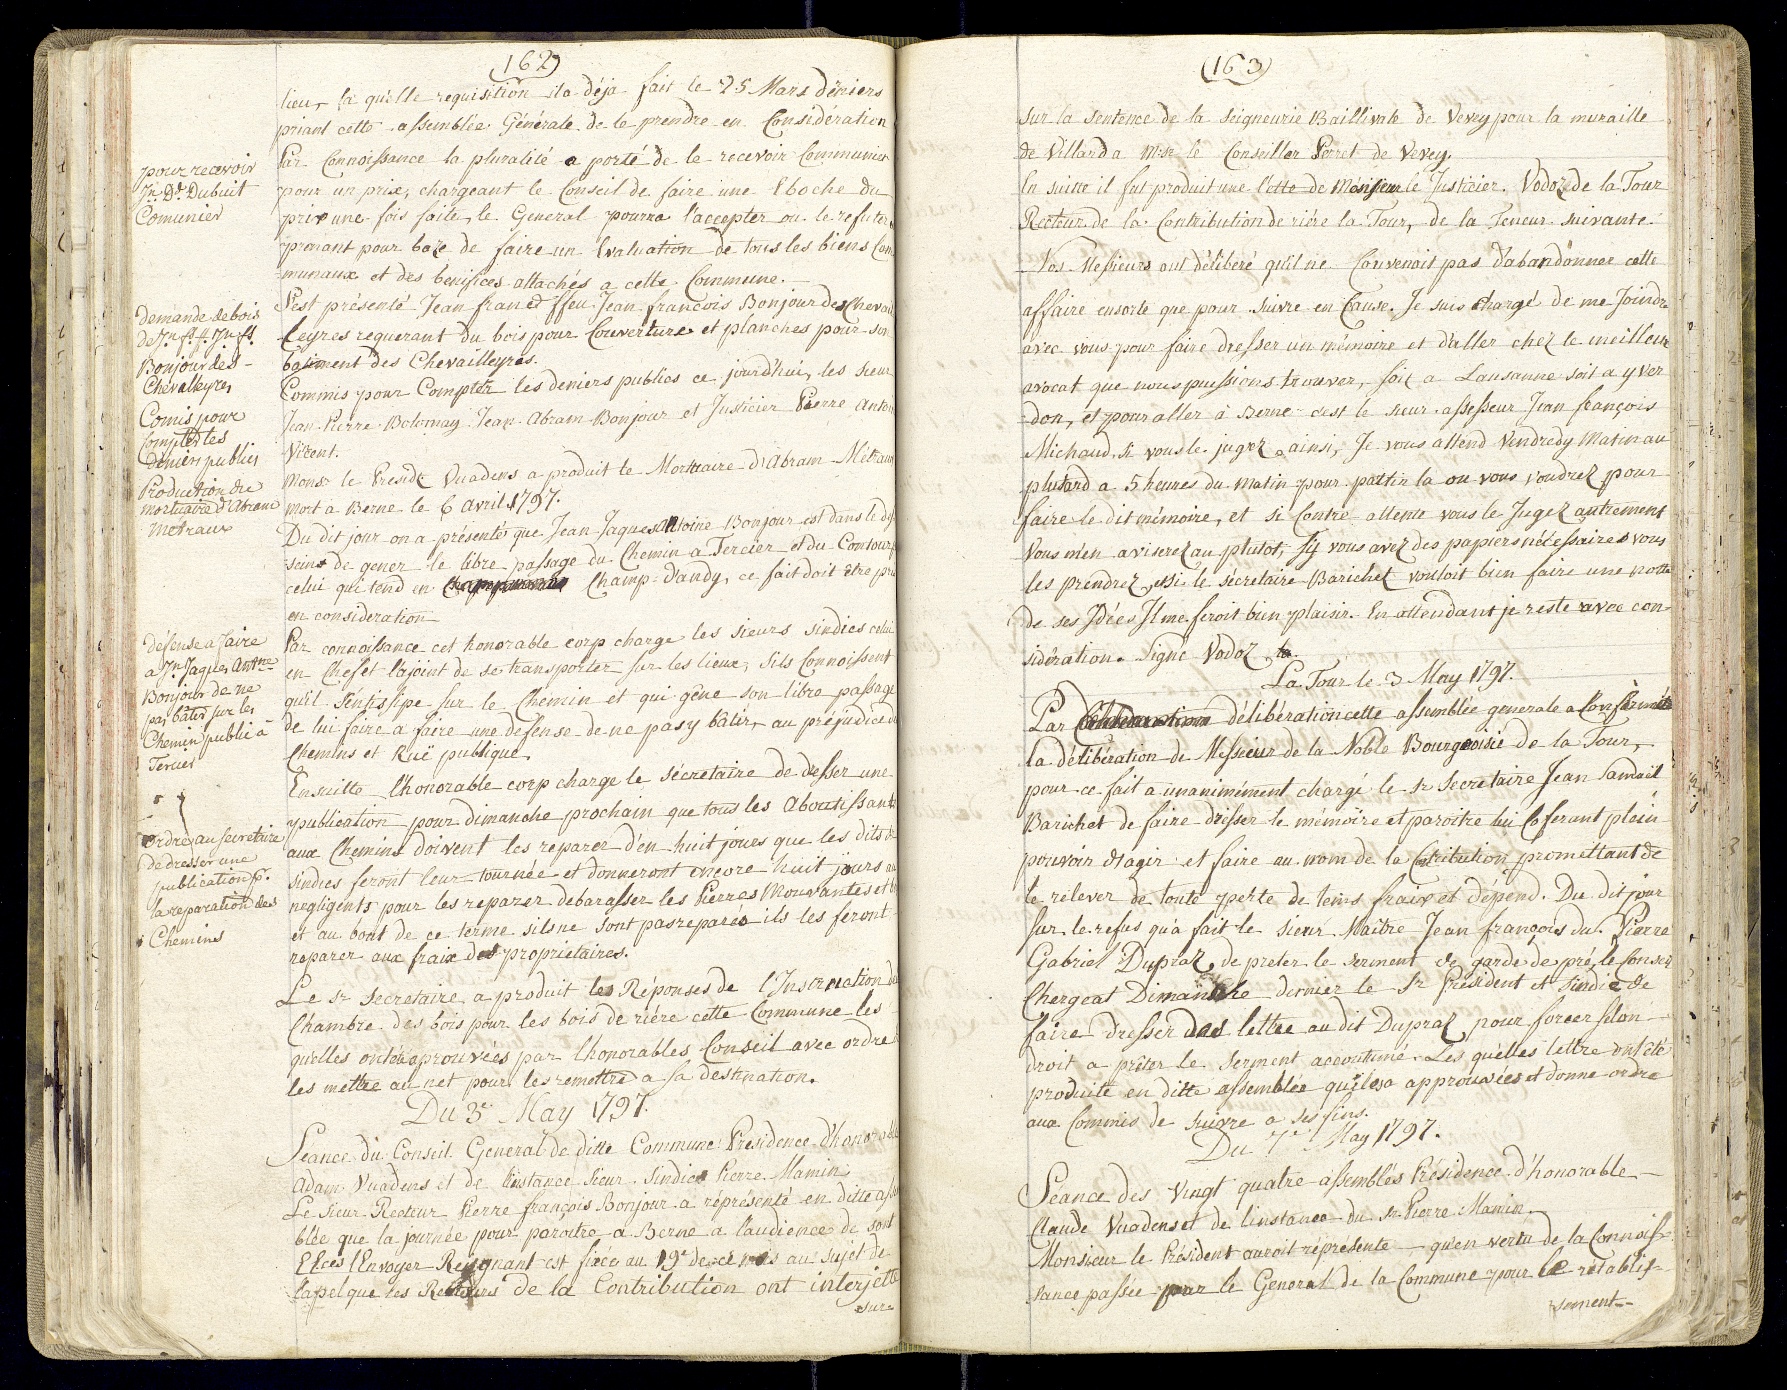 (162)
lieu, la qu'elle requisition il a déja fait le 25 Mars derniers
priant cette assemblée Générale de le prendre en Considération
pour recevoir
Jn. Dd. Dubuit
Comunier
Par Connoissance la pluralité a porté de le recevoir Communier
pour un prix, chargeant le Conseil de faire une Eboche du
prix une fois faite, le General pourra l'accepter ou le refuter
prenant pour baze de faire un Evaluation de tous les biens Com
-munaux et des benifices attachés a cette Commune.
demande de bois
de Jn. fs. ff. Jn. fs.
Bonjour des
Chevalleyres
S'est présenté Jean fran et ffeu Jean françois Bonjour des Cheval
leyres requerant du bois pour Couverture et planches pour son
batiment des Chevailleyres.
Comis pour
compter les
deniers publics
Commis pour Compter les deniers publics ce jourd'hui, les sieur
Jean Pierre Bolomay Jean Abram Bonjour et Justicier Pierre Antoi
Vitent.
Production du
mortuaire d'Abram
Metraux
Monsr le Presidt Vuadens a produit le Mortuaire d'Abram Métraux
mort a Berne le 6 avril 1797.
Du dit jour on a présenté que Jean Jaques Antoine Bonjour est dans le des
seins de gener le libre passage du Chemin a Tercier et du Contour
celui qui tend en Champ d'andy, ce fait doit être pris
en consideration
defense a faire
a Jn. Jaques Antne
Bonjour de ne
pas bâtir sur les
Chemin public à
Tercier
Par connoissance cet honorable corp charge les sieurs sindics celui
en Chef et l'ajoint de se transporter sur les lieux, s'ils Connoissent
qu'il s'entissipe sur le Chemin et qui gêne son libre passage
de lui faire a faire une defense de ne pas y bâtir, au préjudice du
Chemins et Ruë publique.
ordre au secretaire
de dresser une
publication pr.
la reparation des
Chemins
Ensuitte l'honorable corp charge le sécretaire de desser une
publication pour dimanche prochain que tous les Aboutissants
aux Chemins doivent les reparer d'en huit jours que les dits
sindics feront leur tournée et donneront encore huit jours au
negligents pour les reparer debarasser les Pierres Mouvantes et
et au bout de ce terme s'ils ne sont pas reparés ils les feront
reparer aux fraix des proprietaires.
Le sr secretaire a produit les Réponses de l'Instruation de
Chambre des bois pour les bois de riére cette Commune les
quelles ont été aprouvées par l'honorables Conseil avec ordre
les mettre au net pour les remettre a sa destination.
Du 3e May 1797.
Séance du Conseil General de ditte Commune Présidence d'honorable
Adam Vuadens et de linstance sieur sindic Pierre Mamin
Le sieur Recteur Pierre françois Bonjour a réprésenté en ditte assem
blée que la journée pour paroitre a Berne a l'audience de sont
Exces l'Envoyer Regnant est fixée au 19e de ce mois au sujet de
l'apel que les Recteurs de la Contribution ont interjetté
sur
(163)
sur la sentence de la seigneurie Baillivale de Vevey pour la muraille
de Villard a Mr. le Conseiller Perret de Vevey.
En suitte il fut produit une lette de Mosieur le Justicier Vodoz de la Tour
Recteur de la Contribution de riére la Tour, de la Teneur suivante.
Nos Messieurs ont délibéré qu'il ne Convenoit pas d'abandonner cette
affaire ensorte que pour suivre en Cause. Je suis chargé de me Joindre
avec vous pour faire dresser un mémoire et d'aller chez le meilleur
avocat que nous puissions trouver, soit a Lausanne soit a yver
don, et pour aller à Berne c'est le sieur assesseur Jean françois
Michaud si vous le jugez ainsi, Je vous attend Vendredy Matin au
plutard a 5 heures du matin pour partir la ou vous voudrez pour
faire le dit mémoire, et si Contre attente vous le Jugez autrement
Vous m'en aviserez au plutôt, s'y vous avez des papiers nécessaires vous
les prendrez, et si le sécretaire Barichet vouloit bien faire une notte
de ses Idées Il me feroit bien plaisir. En attendant je reste avec con-
sidération. Signé Vodoz
La Tour le 3 May 1797.
Par délibération cette assemblée generale a Conformité
la délibération de Messieur de la Noble Bourgeoisie de la Tour,
pour ce fait a unanimément chargé le sr Secretaire Jean Samuel
Barichet de faire dresser le mémoire et paroitre lui Coferant plein
pouvoir d'agir et faire au nom de la Cotribution promettant de
le relever de toute perte de tems fraix et dépend. Du dit jour
Sur le refus qu'a fait le sieur Maître Jean françois du Pierre
Gabriel Dupraz, de preter le serment de garde de pré, le Conseil
Chergeat Dimanche dernier le Sr Président et Sindic de
faire dresser des lettre au dit Dupraz pour forcer selon
droit a prêter le serment accoutumé. Les qu'elles lettre ont été
produite en ditte assemblée qui les a approuvées et donne ordre
aux Commis de suivre a ses fins.
Du 7e May 1797.
Séance des vingt quatre assemblés Présidence d'honorable
Claude Vuadens et de linstance du Sr. Pierre Mamin.
Monsieur le Président auroit réprésente qu'en vertu de la Connois-
sance passée par le General de la Commune pour le rétablis-
sement